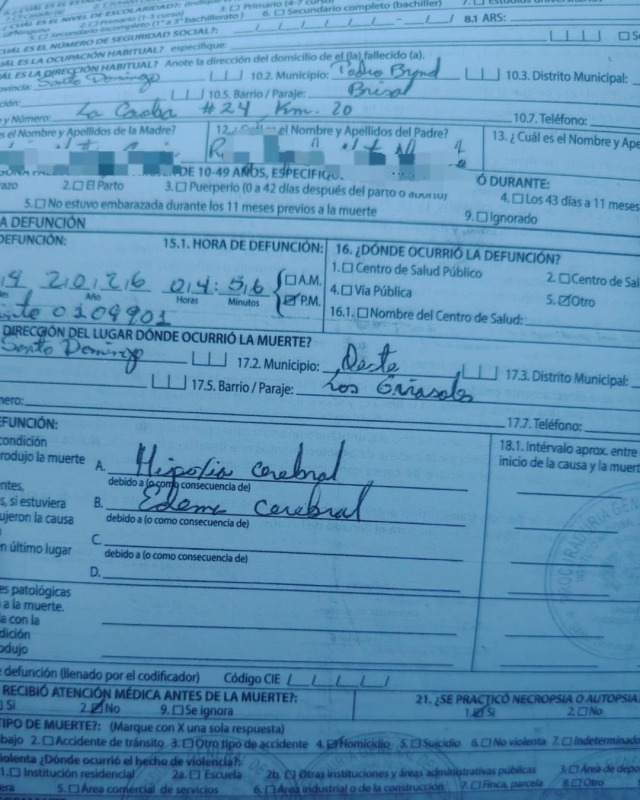 3. ☐ Primario (4-7 curso)
6. ☐ Secundario completo (bachiller)
¿CUÁL ES EL NÚMERO DE SEGURIDAD SOCIAL?: 8.1 ARS:
¿CUÁL ES LA OCUPACIÓN HABITUAL? especifique:
¿CUÁL ES LA DIRECCIÓN HABITUAL? Anote la dirección del domicilio de el (la) fallecido (a).
Santo Domingo 10.2. Municipio: Pedro Brand 10.3. Distrito Municipal:
10.5. Barrio / Paraje: Brisal
y Número: La Cuaba #24, Km. 20 10.7. Teléfono:
es el Nombre y Apellidos de la Madre? el Nombre y Apellidos del Padre? 13. ¿Cuál es el Nombre y Ape
DE 10-49 AÑOS, ESPECIFIQ Ó DURANTE:
2. ☐ El Parto 3. ☐ Puerperio (0 a 42 días después del parto o aborto) 4. ☐ Los 43 días a 11 meses
5. ☐ No estuvo embarazada durante los 11 meses previos a la muerte 9. ☐ Ignorado
A DEFUNCIÓN
DEFUNCIÓN: 15.1. HORA DE DEFUNCIÓN: 16. ¿DÓNDE OCURRIÓ LA DEFUNCIÓN?
1. ☐ Centro de Salud Público 2. ☐ Centro de Sal
2026 04:56 ☐ A.M. 4. ☐ Vía Pública 5. ☑ Otro
Año Horas Minutos ☑ P.M.
0109901 16.1. ☐ Nombre del Centro de Salud:
DIRECCIÓN DEL LUGAR DÓNDE OCURRIÓ LA MUERTE?
Santo Domingo 17.2. Municipio: Oeste 17.3. Distrito Municipal:
17.5. Barrio / Paraje: Los Girasoles
nero: 17.7. Teléfono:
EFUNCIÓN: 18.1. Intérvalo aprox. entre
condición inicio de la causa y la muert
rodujo la muerte A. Hipoxia cerebral
debido a (o como consecuencia de)
s, si estuviera B. Edema cerebral
ujeron la causa debido a (o como consecuencia de)
C.
n último lugar debido a (o como consecuencia de)
D.
es patológicas
a la muerte.
a con la
dición
odujo
PROCURADURIA GEN
defunción (llenado por el codificador) Código CIE
RECIBIÓ ATENCIÓN MÉDICA ANTES DE LA MUERTE?: 21. ¿SE PRACTICÓ NECROPSIA O AUTOPSIA
Si 2. ☑ No 9. ☐ Se ignora 1. ☑ Si 2. ☐ No
TIPO DE MUERTE?: (Marque con X una sola respuesta)
bajo 2. ☐ Accidente de tránsito 3. ☐ Otro tipo de accidente 4. ☑ Homicidio 5. ☐ Suicidio 6. ☐ No violenta 7. ☐ Indeterminado
violenta ¿Dónde ocurrió el hecho de violencia?:
1. ☐ Institución residencial 2a. ☐ Escuela 2b. ☐ Otras instituciones y áreas administrativas públicas 3. ☐ Área de depo
5. ☐ Área comercial de servicios 6. ☐ Área industrial o de la construcción 7. ☐ Finca, parcela 8. ☐ Otro